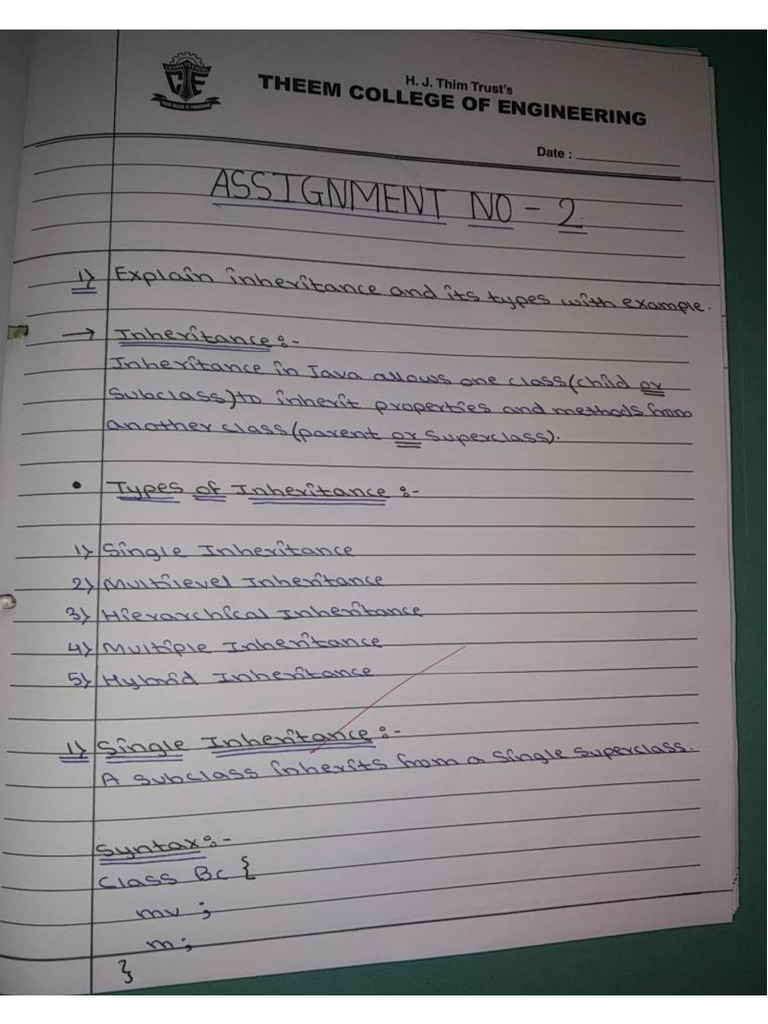 H. J. Thim Trust's
THEEM COLLEGE OF ENGINEERING
Date :
ASSIGNMENT NO - 2
1) Explain inheritance and its types with example.
→ Inheritance :-
Inheritance in Java allows one class (child or
subclass) to inherit properties and methods from
another class (parent or superclass).
• Types of Inheritance :-
1) Single Inheritance
2) Multilevel Inheritance
3) Hierarchical Inheritance
4) Multiple Inheritance
5) Hybrid Inheritance
1) Single Inheritance :-
A subclass inherits from a single superclass.
Syntax :-
Class Bc {
mv ;
m ;
}